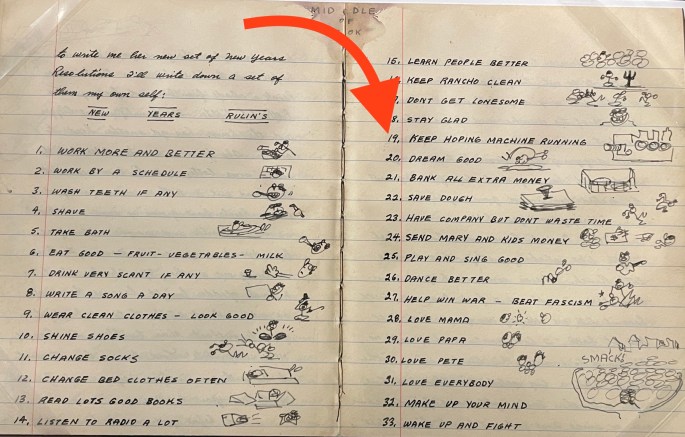 MIDDLE
OF
BOOK
to write me her new set of New Years
Resolutions I'll write down a set of
them my own self:
NEW YEARS RULIN'S
1. WORK MORE AND BETTER
2. WORK BY A SCHEDULE
3. WASH TEETH IF ANY
4. SHAVE
5. TAKE BATH
6. EAT GOOD — FRUIT - VEGETABLES - MILK
7. DRINK VERY SCANT IF ANY
8. WRITE A SONG A DAY
9. WEAR CLEAN CLOTHES — LOOK GOOD
10. SHINE SHOES
11. CHANGE SOCKS
12. CHANGE BED CLOTHES OFTEN
13. READ LOTS GOOD BOOKS
14. LISTEN TO RADIO A LOT
15. LEARN PEOPLE BETTER
KEEP RANCHO CLEAN
7. DONT GET LONESOME
8. STAY GLAD
19. KEEP HOPING MACHINE RUNNING
20. DREAM GOOD
21. BANK ALL EXTRA MONEY
22. SAVE DOUGH
23. HAVE COMPANY BUT DONT WASTE TIME
24. SEND MARY AND KIDS MONEY
25. PLAY AND SING GOOD
26. DANCE BETTER
27. HELP WIN WAR — BEAT FASCISM
28. LOVE MAMA
29. LOVE PAPA
30. LOVE PETE
31. LOVE EVERYBODY
32. MAKE UP YOUR MIND
33. WAKE UP AND FIGHT
SMACKS